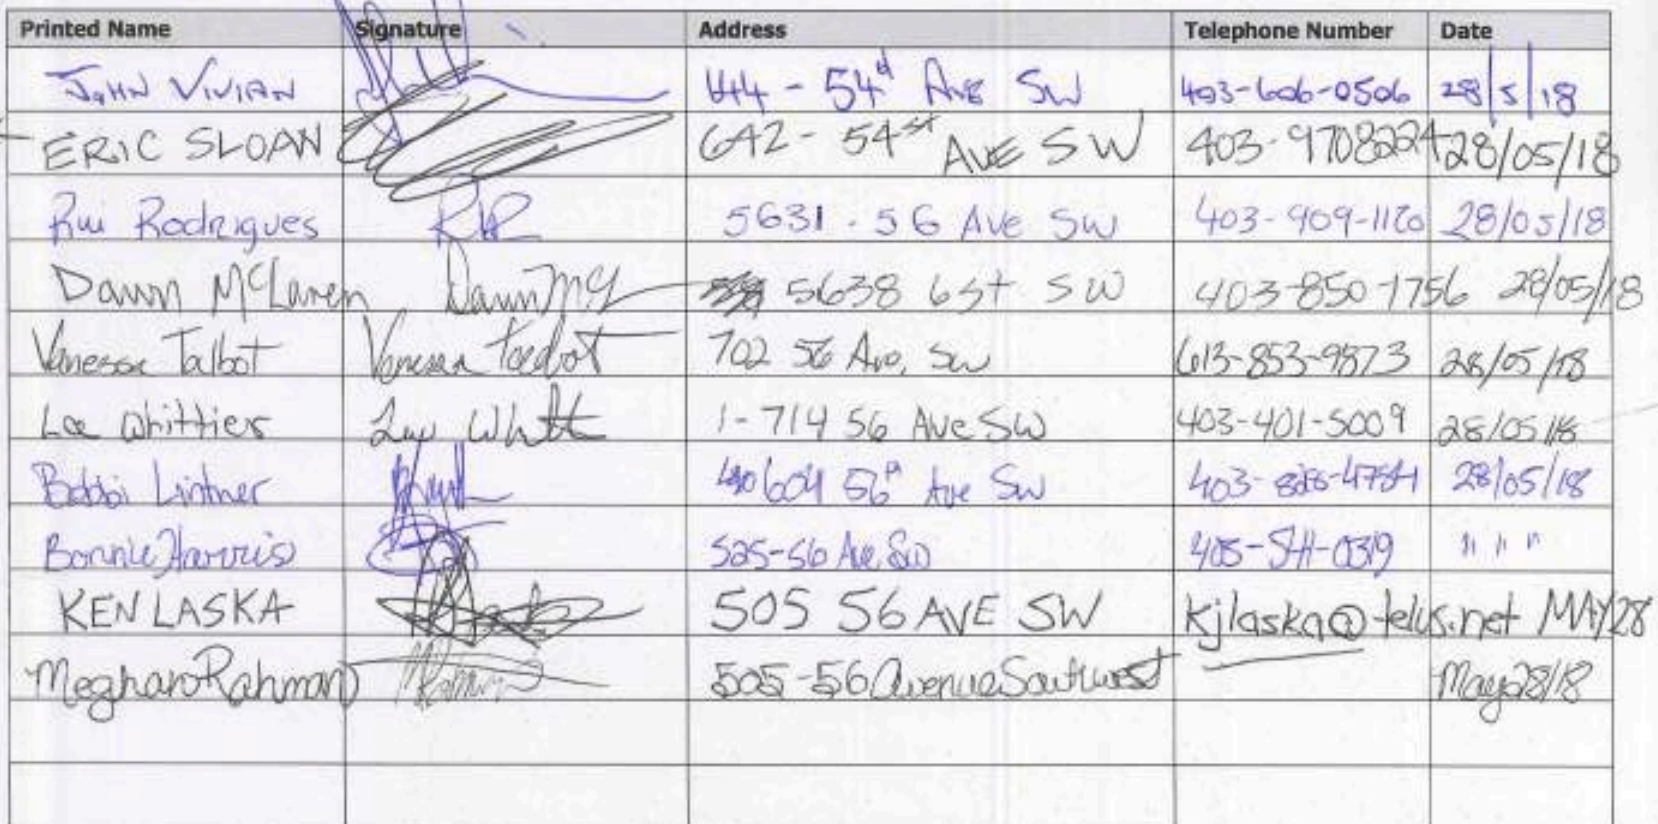 Printed Name Signature Address Telephone Number Date
JOHN VIVIAN 444 - 54th Ave SW 403-606-0506 28/5/18
ERIC SLOAN 642 - 54st AVE SW 403-9708224 28/05/18
Rui Rodrigues RR 5631 - 56 Ave SW 403-909-1120 28/05/18
Dawn McLaren Dawn McL 5638 6 st. SW 403-850-1756 28/05/18
Vanessa Talbot Vanessa Talbot 702 56 Ave. SW 613-853-9873 28/05/18
Lee Whittier 1-714 56 Ave SW 403-401-5009 28/05/18
Bobbi Lintner 604 56th Ave SW 28/05/18
Bonnie Harris 525-56 Ave. SW " " "
KEN LASKA 505 56 AVE SW kjlaska@telus.net MAY 28
Meghan Rahman 505-56 Avenue Southwest May 28/18